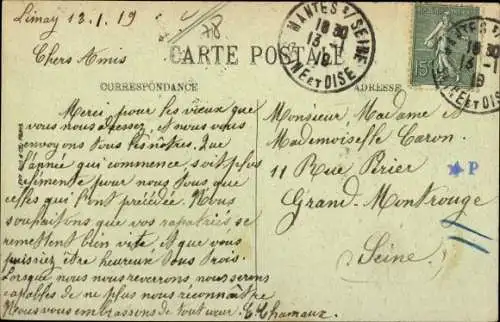 Limay 13.1.19
78
Chers Amis
CARTE POSTALE
CORRESPONDANCE
Merci pour les vœux que
vous nous adressez et nous vous
envoyons tous les nôtres. Que
l'année qui commence soit plus
clémente pour nous tous que
celles qui l'ont précédée. Nous
souhaitons que vos rapatriés se
remettent bien vite et que vous
puissiez être heureux tous trois.
Lorsque nous nous reverrons nous serons
capables de ne plus nous reconnaître
Nous vous embrassons de tout cœur. C. Chamaux
MANTES S/ SEINE
18 30
13 -1
19
SEINE ET OISE
15
MANTES S/ SEINE
18 30
13 -1
19
SEINE ET OISE
ADRESSE
Monsieur, Madame et
Mademoiselle Caron.
11 Rue Périer
P
Grand-Montrouge
Seine